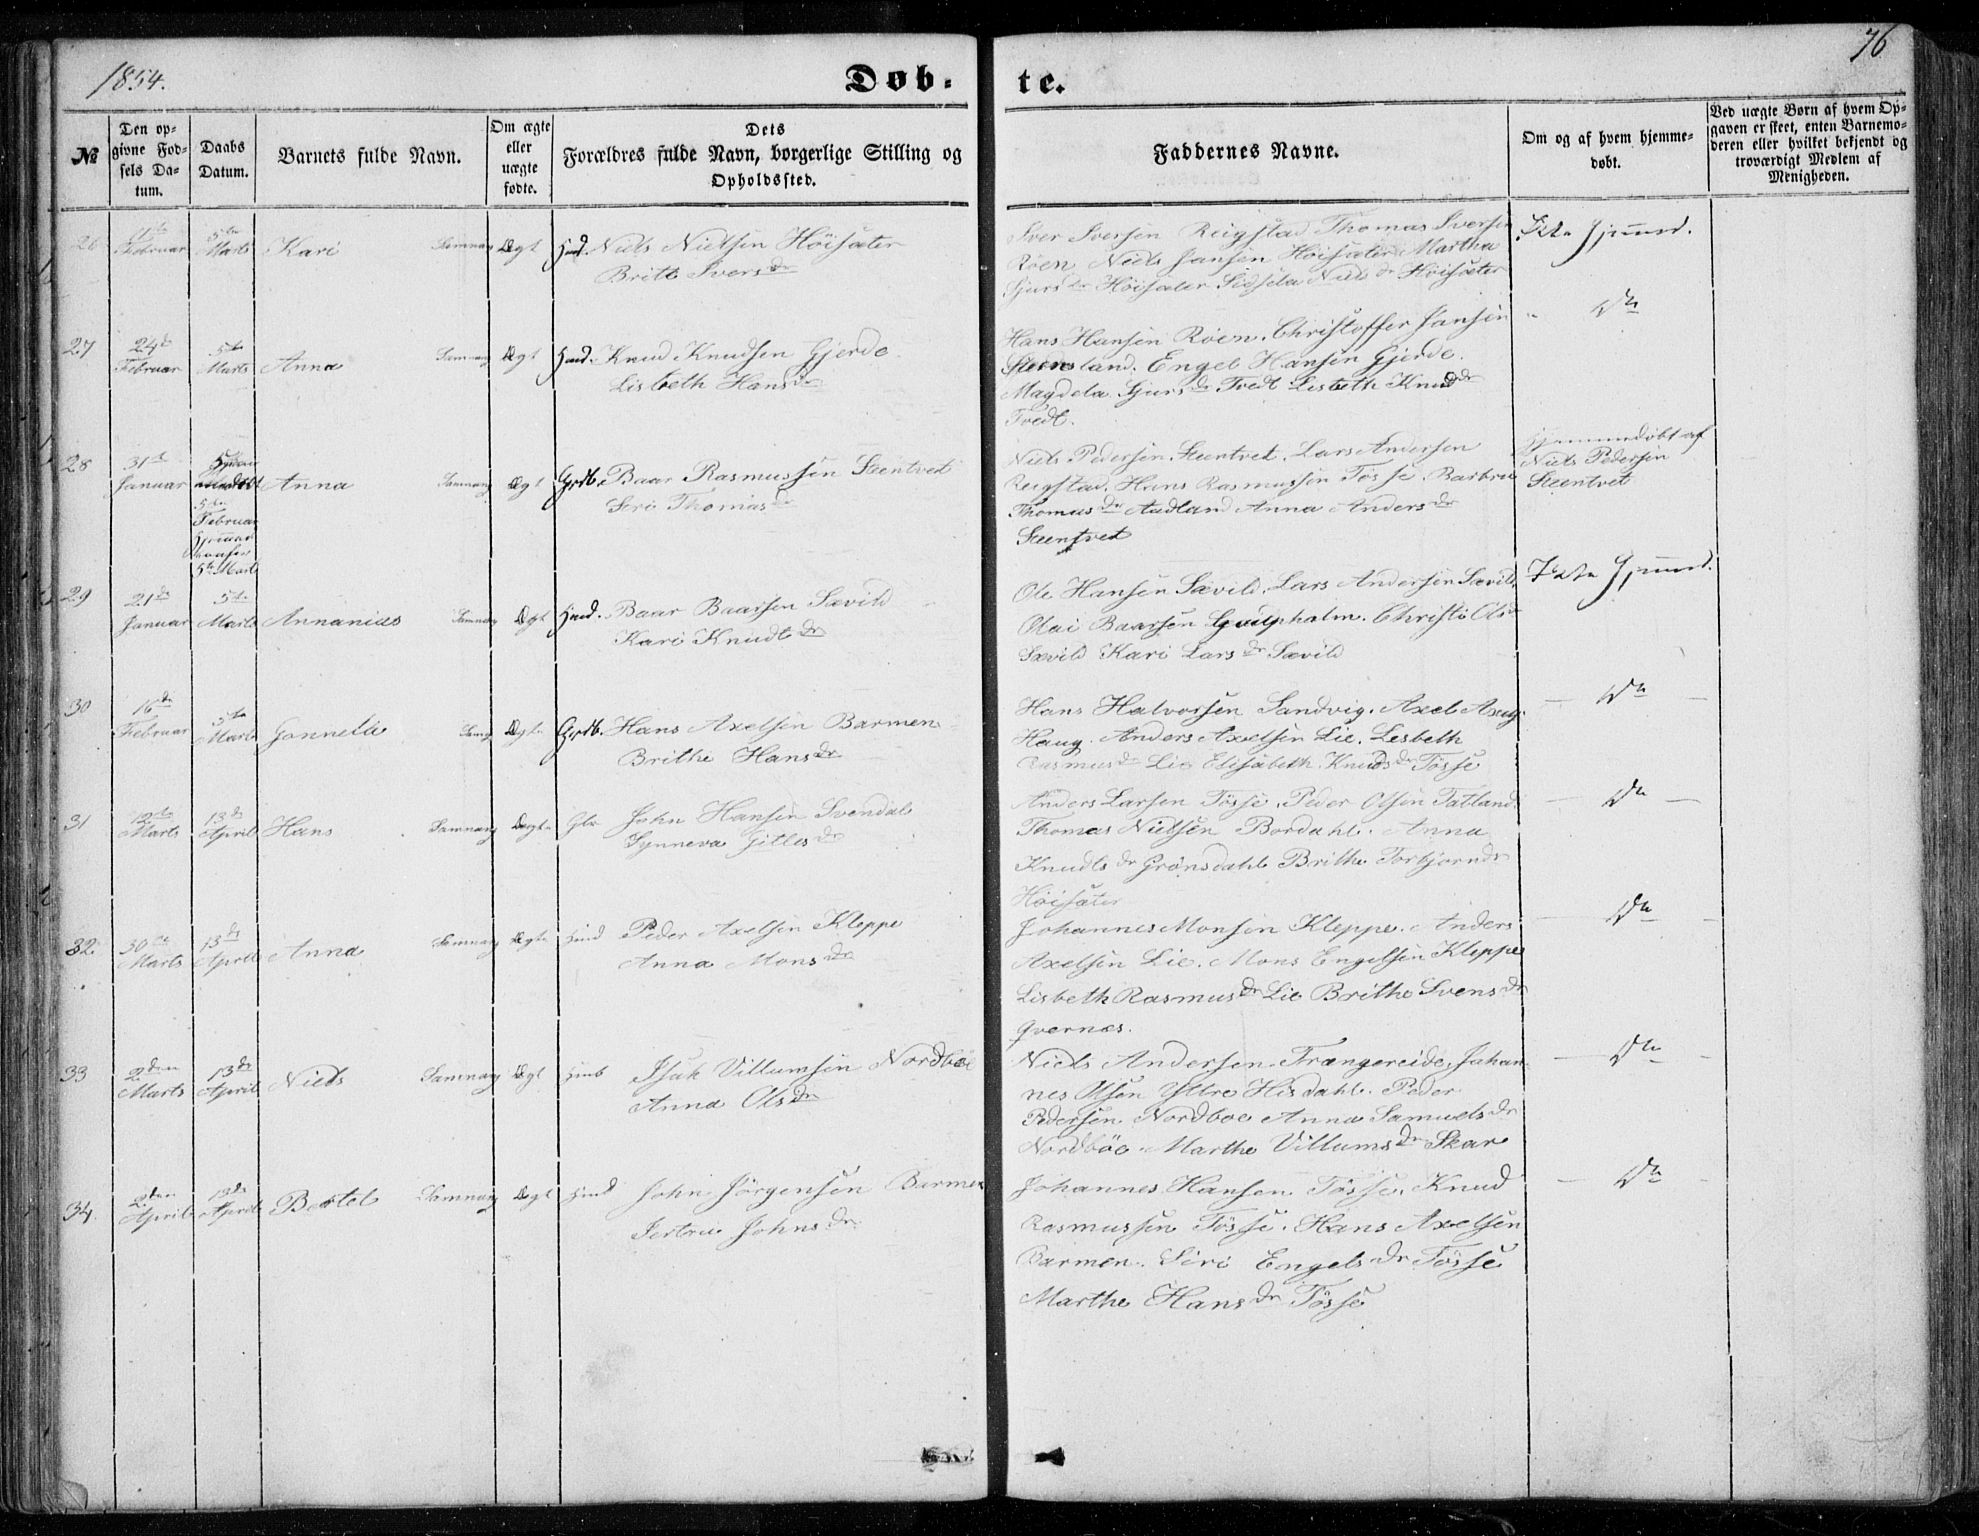 1854.
Døb-
te.
76
№
Den op-
givne Fød-
sels Da-
tum.
Daabs
Datum.
Barnets fulde Navn.
Om ægte
eller
uægte
fødte.
Dets
Forældres fulde Navn, borgerlige Stilling og
Opholdssted.
Faddernes Navne.
Om og af hvem hjemme-
døbt.
Ved uægte Børn af hvem Op-
gaven er skeet, enten Barnemo-
deren eller hvilket bekjendt og
troværdigt Medlem af
Menigheden.
26
Februar
5te
Marts
Kari
Samnang
Ægt
Hmd. Niels Nielsen Höisæter
Britte Ivers dr
Iver Iversen Reigstad Thomas Iversen
Röen Niels Jansen Höisæter Martha
Sjurs dr Höisæter Sidsela Niels dr Höisæter
Ikke Hjemmd.
27
24de
Februar
5te
Marts
Anna
Samnang
Ægt
Hmd. Knud Knudsen Gjerde
Lisbeth Hans dr
Hans Hansen Röen. Christoffer Jansen
Steensland. Engel Hansen Gjerde.
Magdela Sjurs dr Tvedt Lisbeth Knuds dr
Tvedt.
Do
28
31te
Januar
5te
Februar
Hjemmed
5te Marts
Anna
Samnang
Ægt
Grdb. Baar Rasmussen Steentvet
Siri Thomas dr
Niels Pedersen Steentvet. Lars Andersen
Reigstad. Hans Rasmussen Tösse. Barbra
Thomas dr Aadland Anna Anders dr
Steentvet
Hjemmedöbt af
Niels Pedersen
Steentvet
29
21de
Januar
5te
Marts
Annanias
Samnang
Ægt
Hmd. Baar Baarsen Sævild
Kari Knudts dr
Ole Hansen Sævild. Lars Andersen Sævild.
Olai Baarsen Gullholm. Christi Ols dr
Sævild Kari Lars dr Sævild
Ikke Hjemmd.
30
16de
Februar
5te
Marts
Gonnelle
Samng
Ægte
Grdb. Hans Axelsen Barmen
Brithe Hans dr
Hans Halvorsen Sandvig. Axel Axels.
Haug. Anders Axelsen Lie. Lesbeth
Rasmus dr Lie Elisabeth Knuds dr Tösse
Do
31
12te
Marts
13de
April
Hans
Samnang
Ægte
John Hansen Svendal
Synneva Gilles dr
Anders Larsen Tösse. Peder Olsen Tatland.
Thomas Nielsen Bordahl. Anna
Knudts dr Grönsdahl Brithe Torbjornds
Höisæter
Do
32
30te
Marts
13de
April
Anna
Samnang
Ægte
Hmd Peder Axelsen Kleppe
Anna Mons dr
Johannes Monsen Kleppe. Anders
Axelsen Lie. Mons Engelsen Kleppe
Lisbeth Rasmus dr Lie Brithe Svens dr
Qvernes.
Do
33
2den
Marts
13de
April
Niels
Samnang
Ægt
Isak Villumsen Nordböe
Anna Ols dr
Niels Andersen Trængereide, Johan-
nes Olsen Yttre Hisdahl. Peder
Pedersen Nordboe Anna Samuels dr
Nordböe. Marthe Villums dr Skar
Do
34
2den
April
13de
April
Bertel
Samnang
Ægt
Hmd John Jörgensen Barmen
Jertru Johns dr
Johannes Hansen Tösse. Knud
Rasmussen Tösse. Hans Axelsen
Barmen. Siri Engels dr Tösse
Marthe Hans dr Tösse
Do